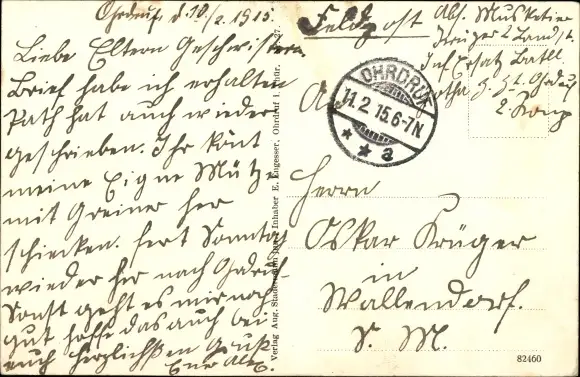 Ohrdruf, d. 10/2. 1915.
Liebe Eltern Geschwistern
Brief habe ich erhalten
Path hat auch wieder
geschrieben. Ihr könt
meine Eigne Mütze
mit Greiner her
schicken. fert Sonntag
wieder her nach Ohrdruf
Sonst geht es mir noch
gut hoffe das auch bei
euch Herzlichsten Gruß
Euer
Verlag Aug. Inhaber E. Engesser, Ohrdruf i. Thür.
Feldpost
Abs. Musketier
Krüger 2 Landst.
Inf Ersatz Batl.
Gotha z. Zt. Ohrdruf
2 Komp
OHRDRUF
11. 2. 15. 6-7N
* * a
An
Herrn
Oskar Krüger
in
Wallendorf.
S. M.
82460